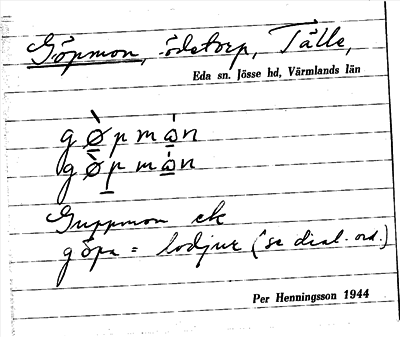 Göpmon, ödetorp, Tålle,
Eda sn. Jösse hd, Värmlands län
g ø̀ p m ω n
g ø̀ p m ω n
Guppmon ek
göpa = lodjur (se dial. ord.)
Per Henningsson 1944